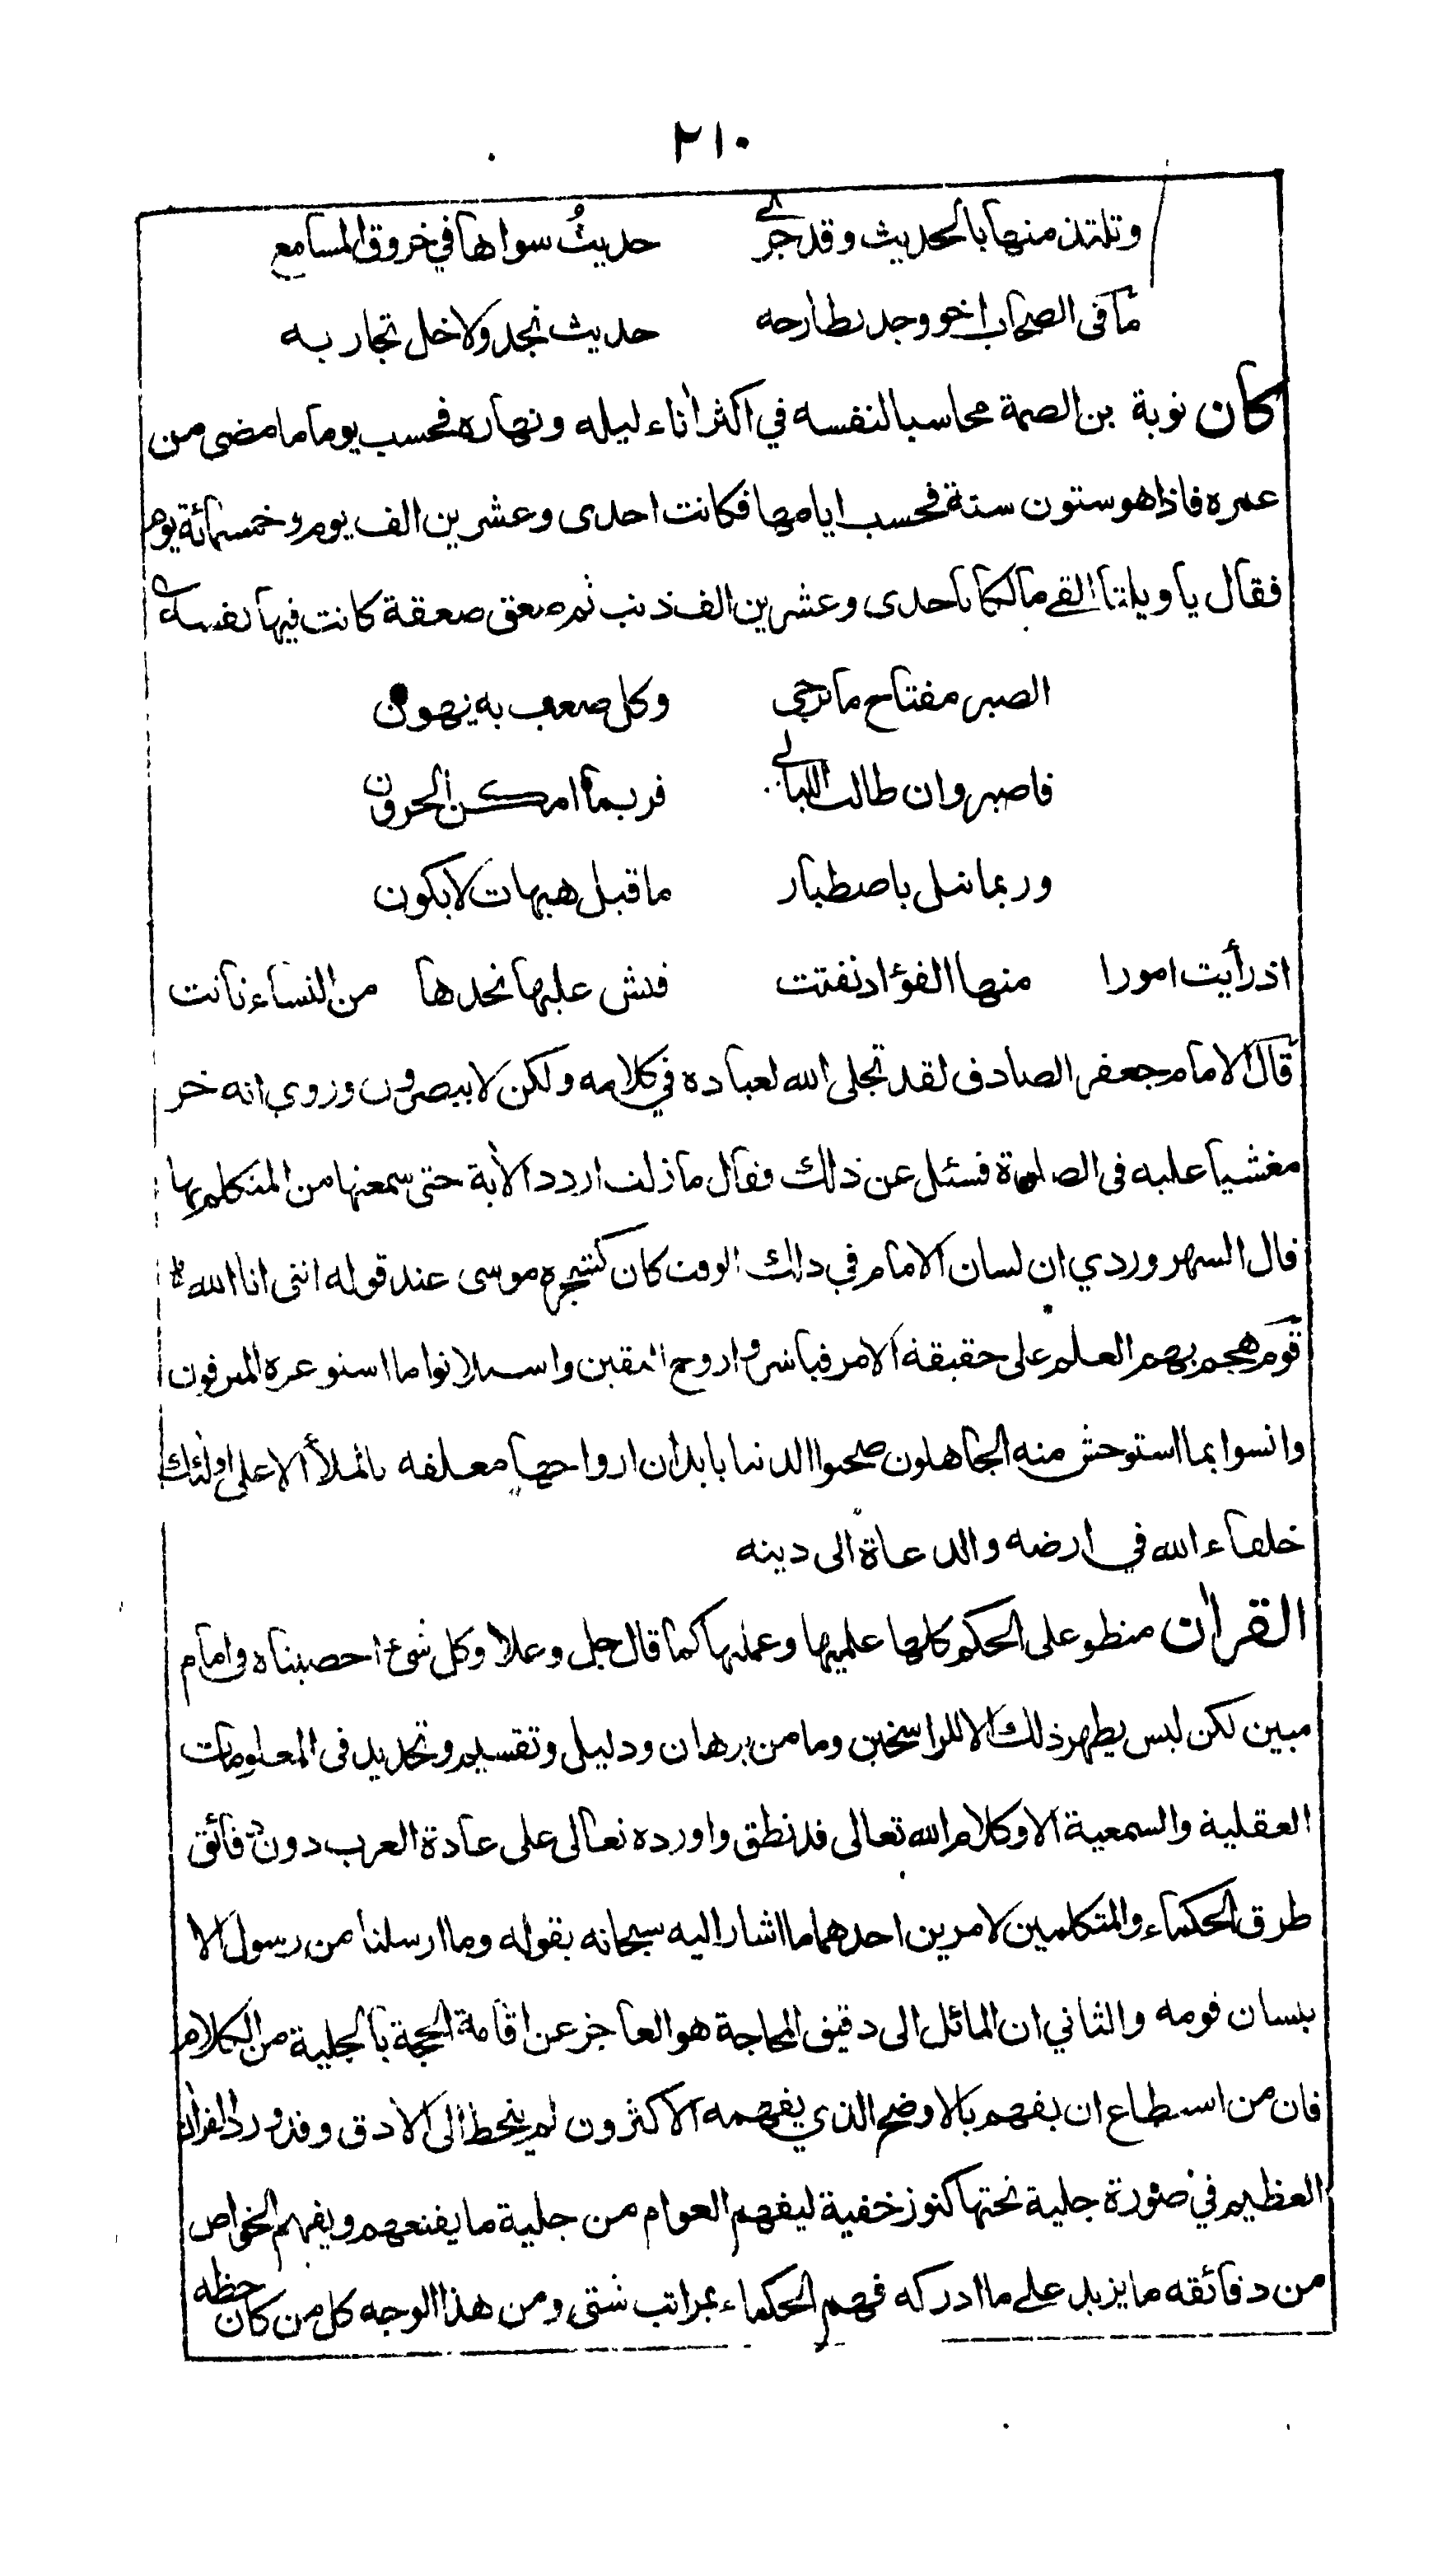 ٢١٠
وتلتذ منها بالحديث وقد جرى حديثُ سواها في خروق المسامع
ما في الصحاب اخو وجد نطارحه حديث نجد ولا خل نجاريه
كان نوبة بن الصمة محاسبا لنفسه في اكثر اناء ليله ونهاره فحسب يوما ما مضى من
عمره فاذا هو ستون سنة فحسب ايامها فكانت احدى وعشرين الف يوم وخمسمائة يوم
فقال يا ويلتا القى مالكا باحدى وعشرين الف ذنب ثم صعق صعقة كانت فيها نفسه
الصبر مفتاح ما يرجى وكل صعب به يهون
فاصبر وان طالت الليالي فربما امكن الحرون
وربما نيل باصطبار ما قيل هيهات لا يكون
اذ رأيت امورا منها الفؤاد تفتت فتش عليها تجدها من النساء تأنت
قال الامام جعفر الصادق لقد تجلى الله لعباده في كلامه ولكن لا يبصرون وروي انه خر
مغشيا عليه في الصلوة فسئل عن ذلك فقال ما زلت اردد الآية حتى سمعتها من المتكلم بها
قال السهروردي ان لسان الامام في ذلك الوقت كان كشجرة موسى عند قوله انني انا الله
قوم هجم بهم العلم على حقيقة الامر فباشروا روح اليقين واستلانوا ما استوعره المترفون
وانسوا بما استوحش منه الجاهلون صحبوا الدنيا بابدان ارواحها معلقة بالملأ الاعلى اولئك
خلفاء الله في ارضه والدعاة الى دينه
القران منطو على الحكم كلها علميها وعمليها كما قال جل وعلا وكل شيء احصيناه في امام
مبين لكن ليس يظهر ذلك الا للراسخين وما من برهان ودليل وتقسيم وتحديد في المعلومات
العقلية والسمعية الا وكلام الله تعالى قد نطق واورده تعالى على عادة العرب دون دقائق
طرق الحكماء والمتكلمين لامرين احدهما ما اشار اليه سبحانه بقوله وما ارسلنا من رسول الا
بلسان قومه والثاني ان المائل الى دقيق المحاجة هو العاجز عن اقامة الحجة بالجلية من الكلام
فان من استطاع ان يفهم بالاوضح الذي يفهمه الاكثرون لم ينحط الى الادق وقد ورد القران
العظيم في صورة جلية تحتها كنوز خفية ليفهم العوام من جلية ما يقنعهم ويفهم الخواص
من دقائقه ما يزيد على ما ادركه فهم الحكماء بمراتب شتى ومن هذا الوجه كل من كان حظه